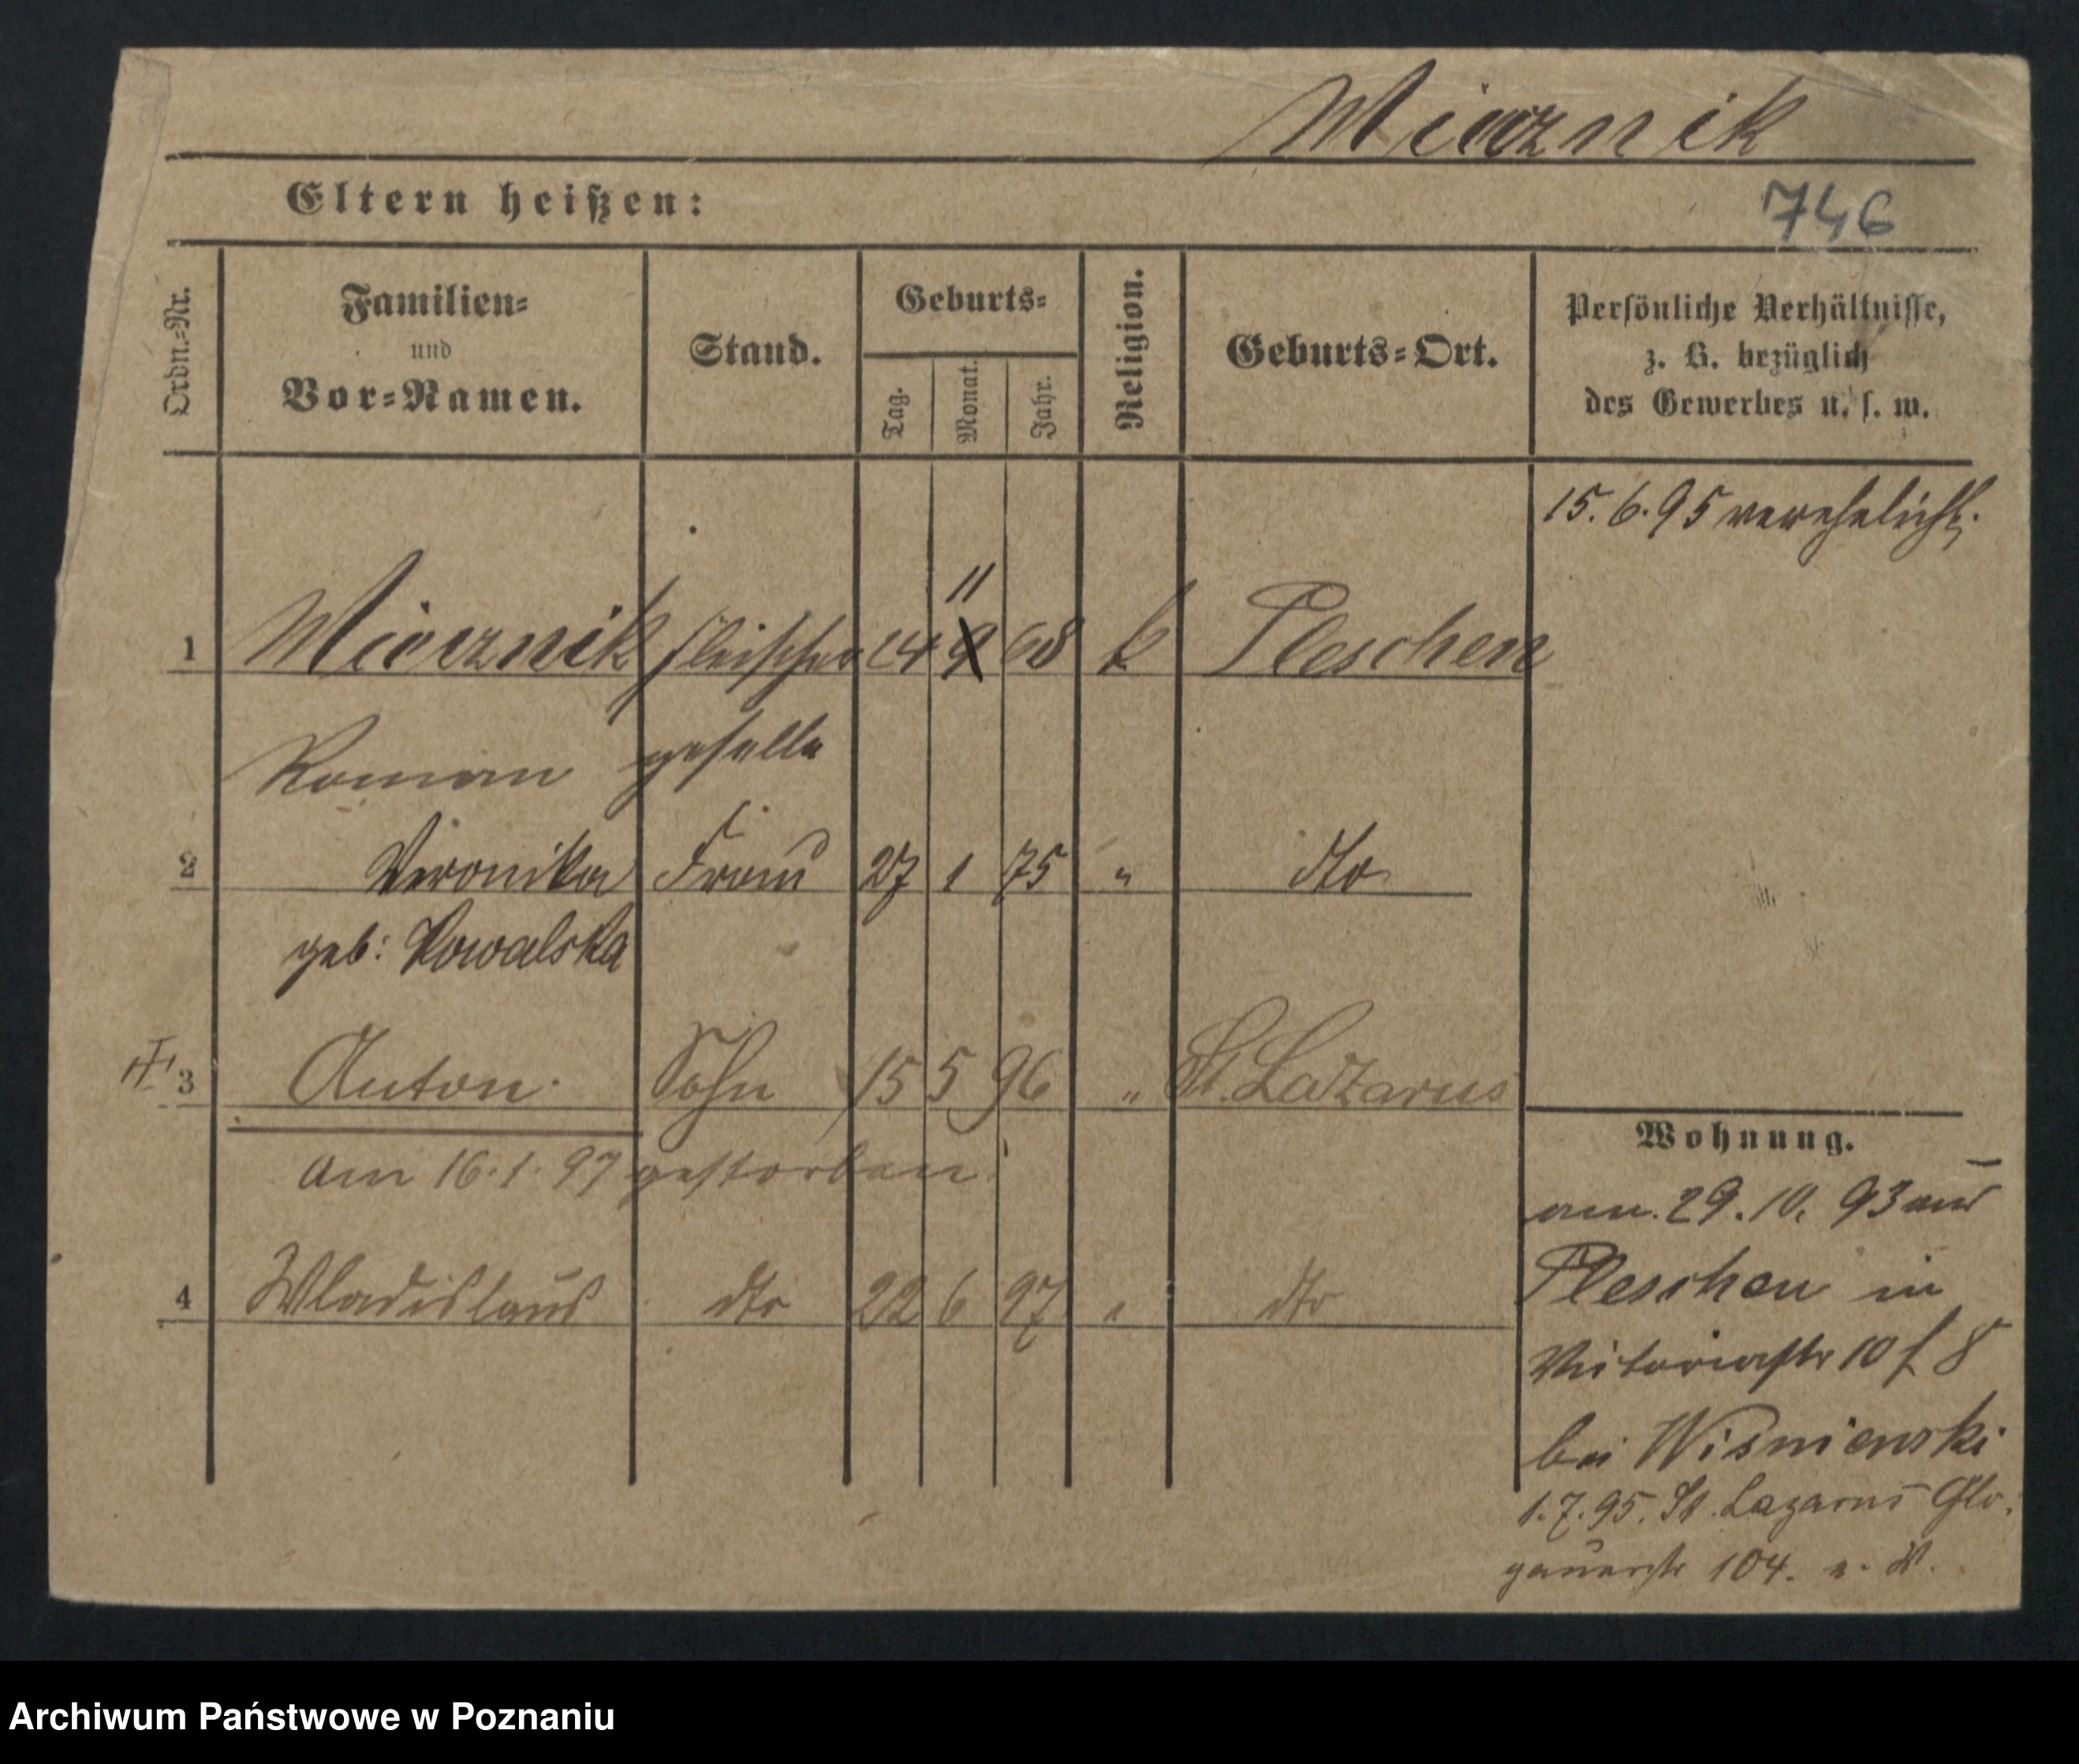 Miecznik
746
Eltern heißen:
Ordn.-Nr.
Familien- und Vor-Namen.
Stand.
Geburts-
Tag.
Monat.
Jahr.
Religion.
Geburts-Ort.
Persönliche Verhältnisse,
z. B. bezüglich
des Gewerbes u. s. w.
15. 6. 95 verehelicht.
11
1 Miecznik Fleischer 24 9 68 k Pleschen
Roman geselle
2 Veronika Frau 27 1 75 " dto
geb: Kowalska
3 Anton. Sohn 15 5 96 " St. Lazarus
am 16. 1. 97 gestorben.
4 Wladislaus dto 22 6 97 " dto
Wohnung.
am 29. 10. 93 aus
Pleschen in
Victoriastr 10 f 8
bei Wisniewski
1. 7. 95. St. Lazarus Glo-
gauerstr 104.
Archiwum Państwowe w Poznaniu